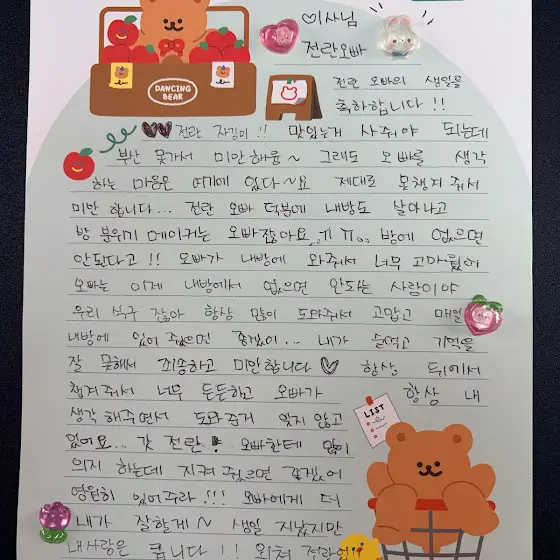 ♡이사님
전란오빠
DANCING BEAR
전란 오빠의 생일을
축하합니다 !!
♥♥ 전란 자김이 !! 맛있는거 사줘야 되는데
부산 못가서 미안해욥~ 그래도 오빠를 생각
하는 마음은 여기에 있다~요 제대로 못챙겨 줘서
미안 합니다... 전란 오빠 덕분에 내방도 살아나고
방 분위기 메이커는 오빠잖아요 ㅠㅠ 방에 없으면
안된다고 !! 오빠가 내방에 와줘서 너무 고마웠어
오빠는 이제 내방에서 없으면 안되는 사람이야
우리 식구 잖아 항상 많이 도와줘서 고맙고 매일
내방에 있어 줬으면 좋겠어... 내가 술먹고 기억을
잘 못해서 죄송하고 미안합니다 ♡ 항상 뒤에서
챙겨줘서 너무 든든하고 오빠가 항상 내
생각 해주면서 도와준거 잊지 않고
LIST
있어요... 갓 전란! 오빠한테 많이
의지 하는데 지켜 줬으면 좋겠어
영원히 있어주라 !!! 오빠에게 더
내가 잘할게~ 생일 지났지만
내사랑은 큽니다 !! 외쳐 전란